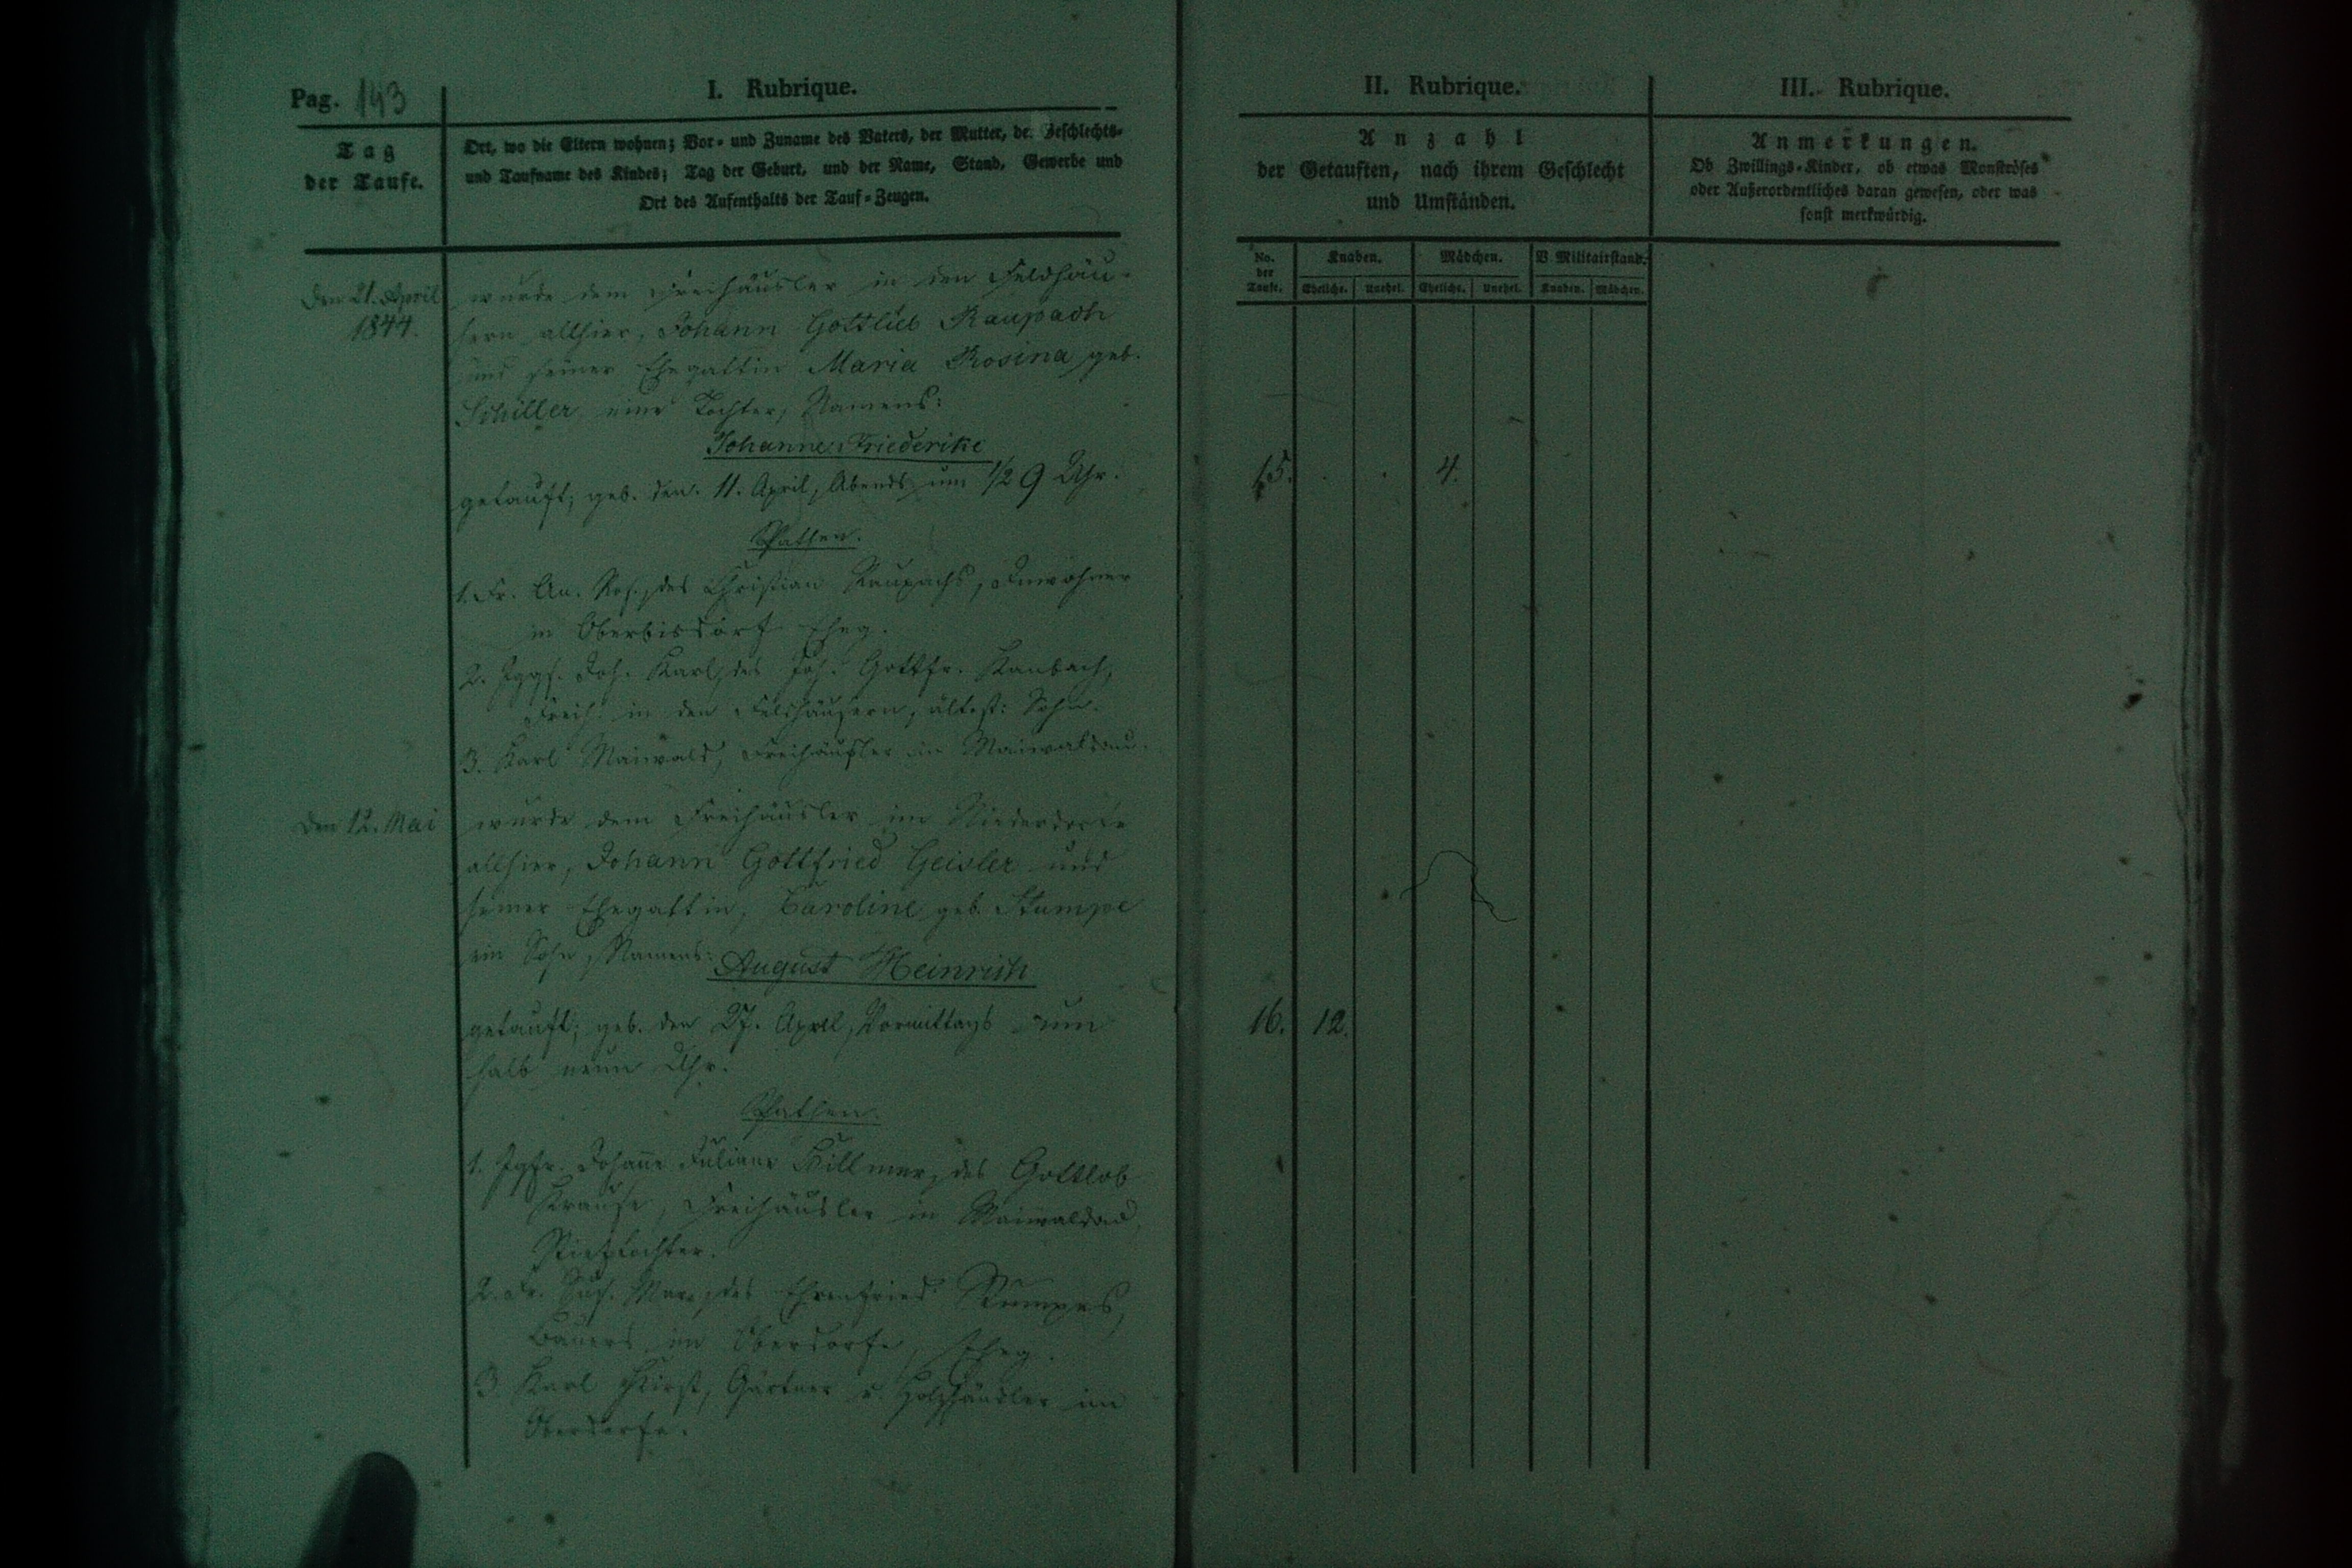 Pag. 143
I. Rubrique.
Tag
der Taufe.
Ort, wo die Eltern wohnen; Vor- und Zuname des Vaters, der Mutter, der Geschlechts-
und Taufname des Kindes; Tag der Geburt, und der Name, Stand, Gewerbe und
Ort des Aufenthalts der Tauf-Zeugen.
Den 21. April
1844.
wurde dem Freihäusler in den Feldhäu-
sern allhier, Johann Gottlieb Raupach
und seiner Ehegattin Maria Rosina geb.
Schiller, eine Tochter, Namens:
Johanne Friederike
getauft; geb. den 11. April, Abends um 1/2 9 Uhr.
Pathen.
1. Fr. An. Ros., des Christian Raupachs, Inwohner
in Oberbisdorf Eheg.
2. Jggs. Joh. Karl, des Joh. Gottfr. Raubach,
Freih. in den Feldhäusern, ältest: Sohn.
3. Karl Maiwald, Freihäusler in Maiwaldau.
Den 12. Mai
wurde dem Freihäusler im Niederdorfe
allhier, Johann Gottfried Geisler und
seiner Ehegattin, Caroline geb. Stumpe
ein Sohn, Namens: August Heinrich
getauft; geb. den 27. April, Vormittags um
halb neun Uhr.
Pathen.
1. Jgfr. Johanne Juliane Hillmer, des Gottlob
Krause, Freihäusler in Maiwaldau,
Stieftochter.
2. Fr. Mar., des Ehrenfried Stumpes,
Bauers im Oberdorfe, Eheg.
3 Karl Hirst, Gärtner u. Holzhändler im
Oberdorfe.
II. Rubrique.
Anzahl
der Getauften, nach ihrem Geschlecht
und Umständen.
No.
der
Taufe.
Knaben. Mädchen. V. Militairstand.
Eheliche. Unehel. Eheliche. Unehel. Knaben. Mädchen.
15. 4.
16. 12.
III. Rubrique.
Anmerkungen.
Ob Zwillings-Kinder, ob etwas Monströses
oder Außerordentliches daran gewesen, oder was
sonst merkwürdig.